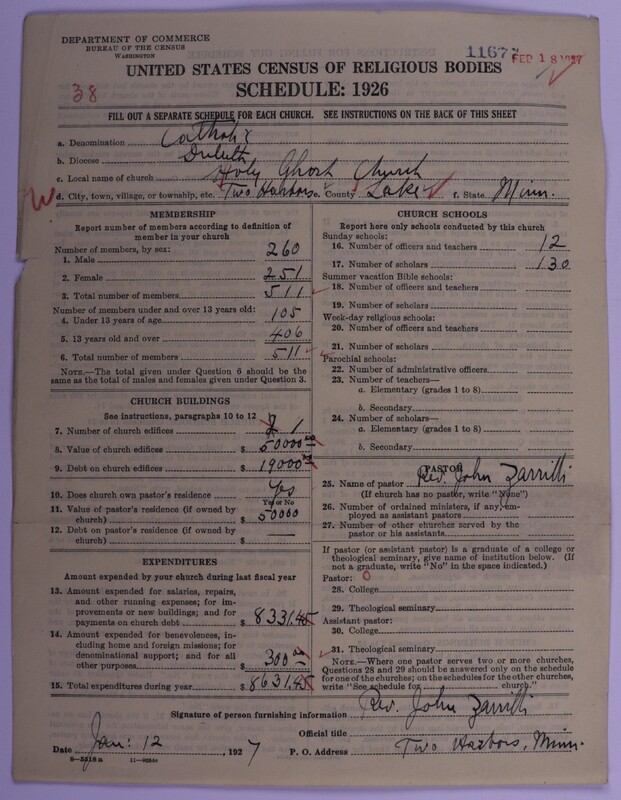 DEPARTMENT OF COMMERCE
BUREAU OF THE CENSUS
WASHINGTON
11677
FEB 18 1927
UNITED STATES CENSUS OF RELIGIOUS BODIES
38
SCHEDULE: 1926
FILL OUT A SEPARATE SCHEDULE FOR EACH CHURCH. SEE INSTRUCTIONS ON THE BACK OF THIS SHEET
a. Denomination Catholic
b. Diocese Duluth
c. Local name of church Holy Ghost Church
d. City, town, village, or township, etc. Two Harbors e. County Lake f. State Minn.
MEMBERSHIP
Report number of members according to definition of
member in your church
Number of members, by sex:
1. Male 260
2. Female 251
3. Total number of members 511
Number of members under and over 13 years old:
4. Under 13 years of age 105
5. 13 years old and over 406
6. Total number of members 511
NOTE.—The total given under Question 6 should be
the same as the total of males and females given under Question 3.
CHURCH BUILDINGS
See instructions, paragraphs 10 to 12
7. Number of church edifices 1
8. Value of church edifices $ 50000
9. Debt on church edifices $ 19000
10. Does church own pastor's residence Yes
Yes or No
11. Value of pastor's residence (if owned by
church) $ 50000
12. Debt on pastor's residence (if owned by
church) $ —
EXPENDITURES
Amount expended by your church during last fiscal year
13. Amount expended for salaries, repairs,
and other running expenses; for im-
provements or new buildings; and for
payments on church debt $ 8331.45
14. Amount expended for benevolences, in-
cluding home and foreign missions; for
denominational support; and for all
other purposes $ 300
15. Total expenditures during year $ 8631.45
CHURCH SCHOOLS
Report here only schools conducted by this church
Sunday schools:
16. Number of officers and teachers 12
17. Number of scholars 130
Summer vacation Bible schools:
18. Number of officers and teachers
19. Number of scholars
Week-day religious schools:
20. Number of officers and teachers
21. Number of scholars
Parochial schools:
22. Number of administrative officers
23. Number of teachers—
a. Elementary (grades 1 to 8)
b. Secondary
24. Number of scholars—
a. Elementary (grades 1 to 8)
b. Secondary
PASTOR
25. Name of pastor Rev. John Zarrilli
(If church has no pastor, write "None")
26. Number of ordained ministers, if any, em-
ployed as assistant pastors
27. Number of other churches served by the
pastor or his assistants
If pastor (or assistant pastor) is a graduate of a college or
theological seminary, give name of institution below. (If
not a graduate, write "No" in the space indicated.)
Pastor: 0
28. College
29. Theological seminary
Assistant pastor:
30. College
31. Theological seminary
NOTE.—Where one pastor serves two or more churches,
Questions 28 and 29 should be answered only on the schedule
for one of the churches; on the schedules for the other churches,
write "See schedule for church."
Signature of person furnishing information Rev. John Zarrilli
Official title
Date Jan: 12, 1927 P. O. Address Two Harbors, Minn.
8-5518a 11-9254a